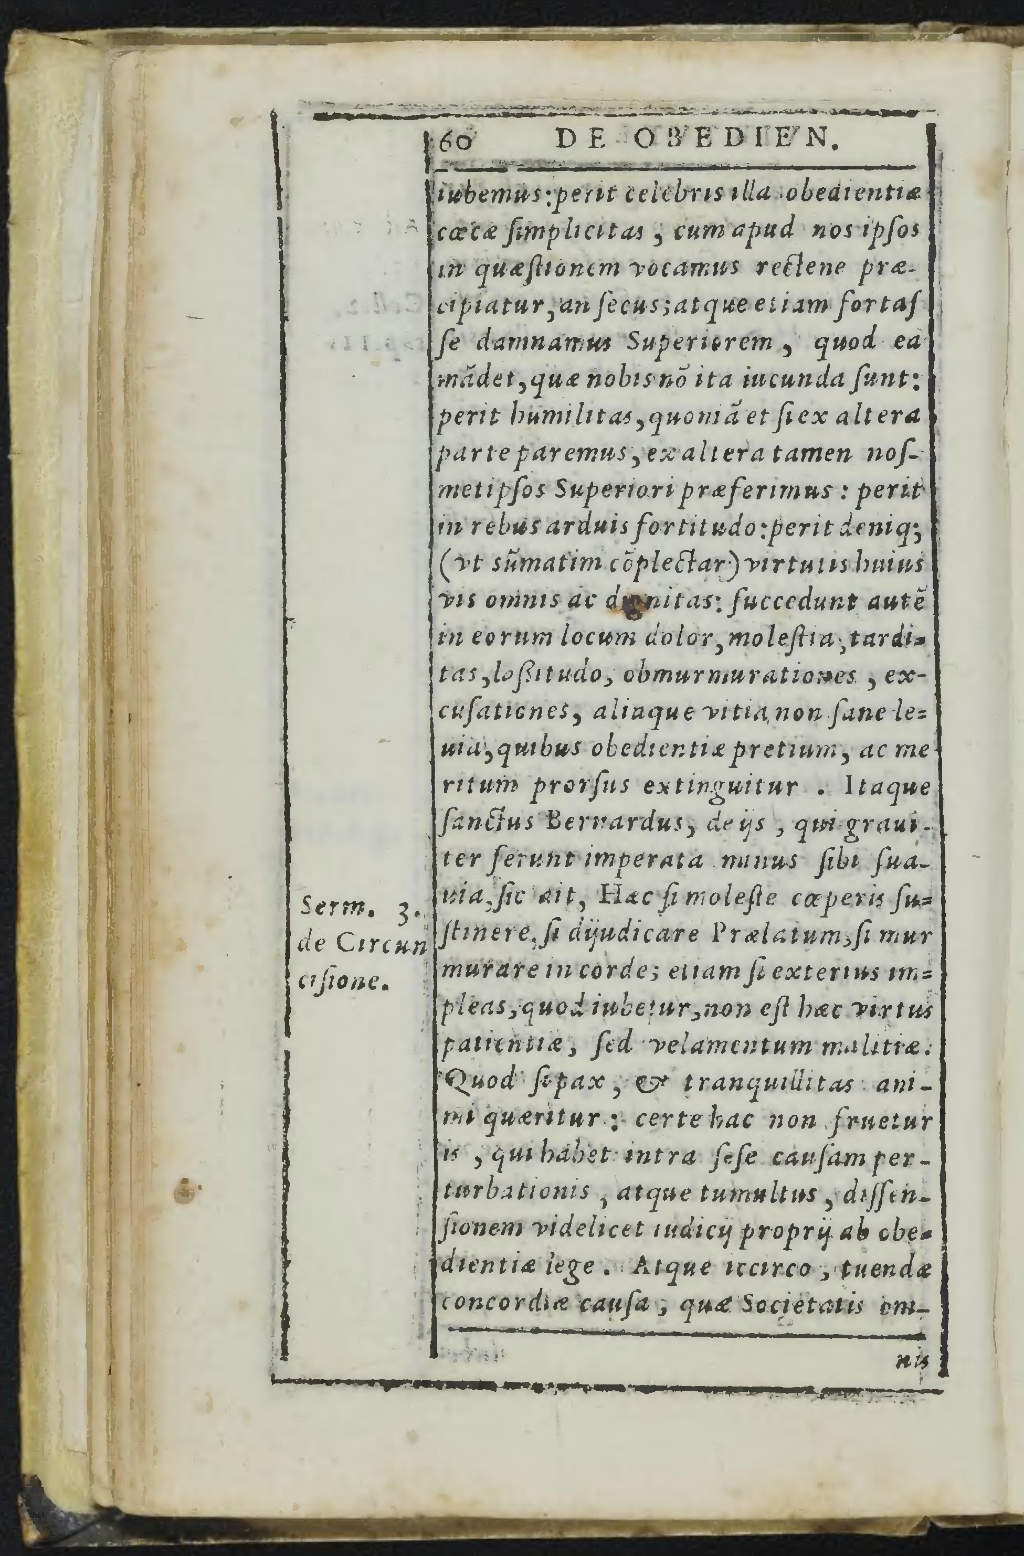 60 DE OBEDIEN.
iubemus: perit celebris illa obedientiæ
cœcæ ſimplicitas, cum apud nos ipſos
in quæſtionem vocamus rectene præ-
cipiatur, an ſecus; atque etiam fortaſ
ſe damnamus Superiorem, quod ea
mãdet, quæ nobis nõ ita iucunda ſunt:
perit humilitas, quoniã et ſi ex altera
parte paremus, ex altera tamen noſ-
metipſos Superiori præferimus: perit
in rebus arduis fortitudo: perit deniq;
(vt sũmatim cõplectar) virtutis huius
vis omnis ac dignitas: ſuccedunt autẽ
in eorum locum dolor, moleſtia, tardi=
tas, laſsitudo, obmurmurationes, ex-
cuſationes, aliaque vitia non ſane le=
uia, quibus obedientiæ pretium, ac me
ritum prorſus extinguitur. Itaque
ſanctus Bernardus, de ijs, qui graui-
ter ferunt imperata minus ſibi ſua-
uia, ſic ait, Hæc ſi moleſte cœperis ſu=
ſtinere, ſi dijudicare Prælatum, ſi mur
murare in corde; etiam ſi exterius im=
pleas, quod iubetur, non eſt hæc virtus
patientiæ, ſed velamentum malitiæ.
Quod ſi pax, & tranquillitas ani-
mi quæritur: certe hac non fruetur
is, qui habet intra ſeſe cauſam per-
turbationis, atque tumultus, diſſen-
ſionem videlicet iudicij proprij ab obe=
dientiæ lege. Atque iccirco, tuendæ
concordiæ cauſa, quæ Societatis om-
nis
Serm. 3.
de Circun
ciſione.